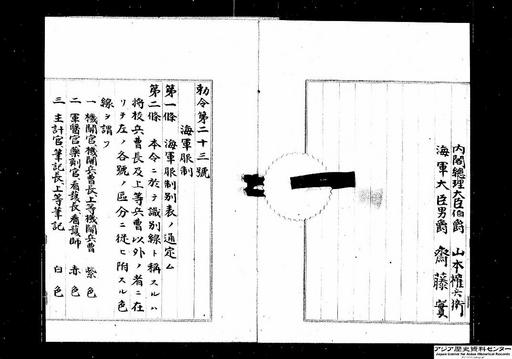 内閣總理大臣伯爵 山本權兵衛
海軍大臣男爵 齋藤實
勅令第二十三號
海軍服制
第一條 海軍服制別表ノ通定ム
第二條 本令ニ於テ識別線ト稱スルハ
將校兵曹長及上等兵曹以外ノ者ニ在
リテ左ノ各號ノ區分ニ從ヒ附スル色
線ヲ謂フ
一 機關官機關兵曹長上等機關兵曹 紫色
二 軍醫官藥劑官看護長看護師 赤色
三 主計官筆記長上等筆記 白色
アジア歴史資料センター
Japan Center for Asian Historical Records